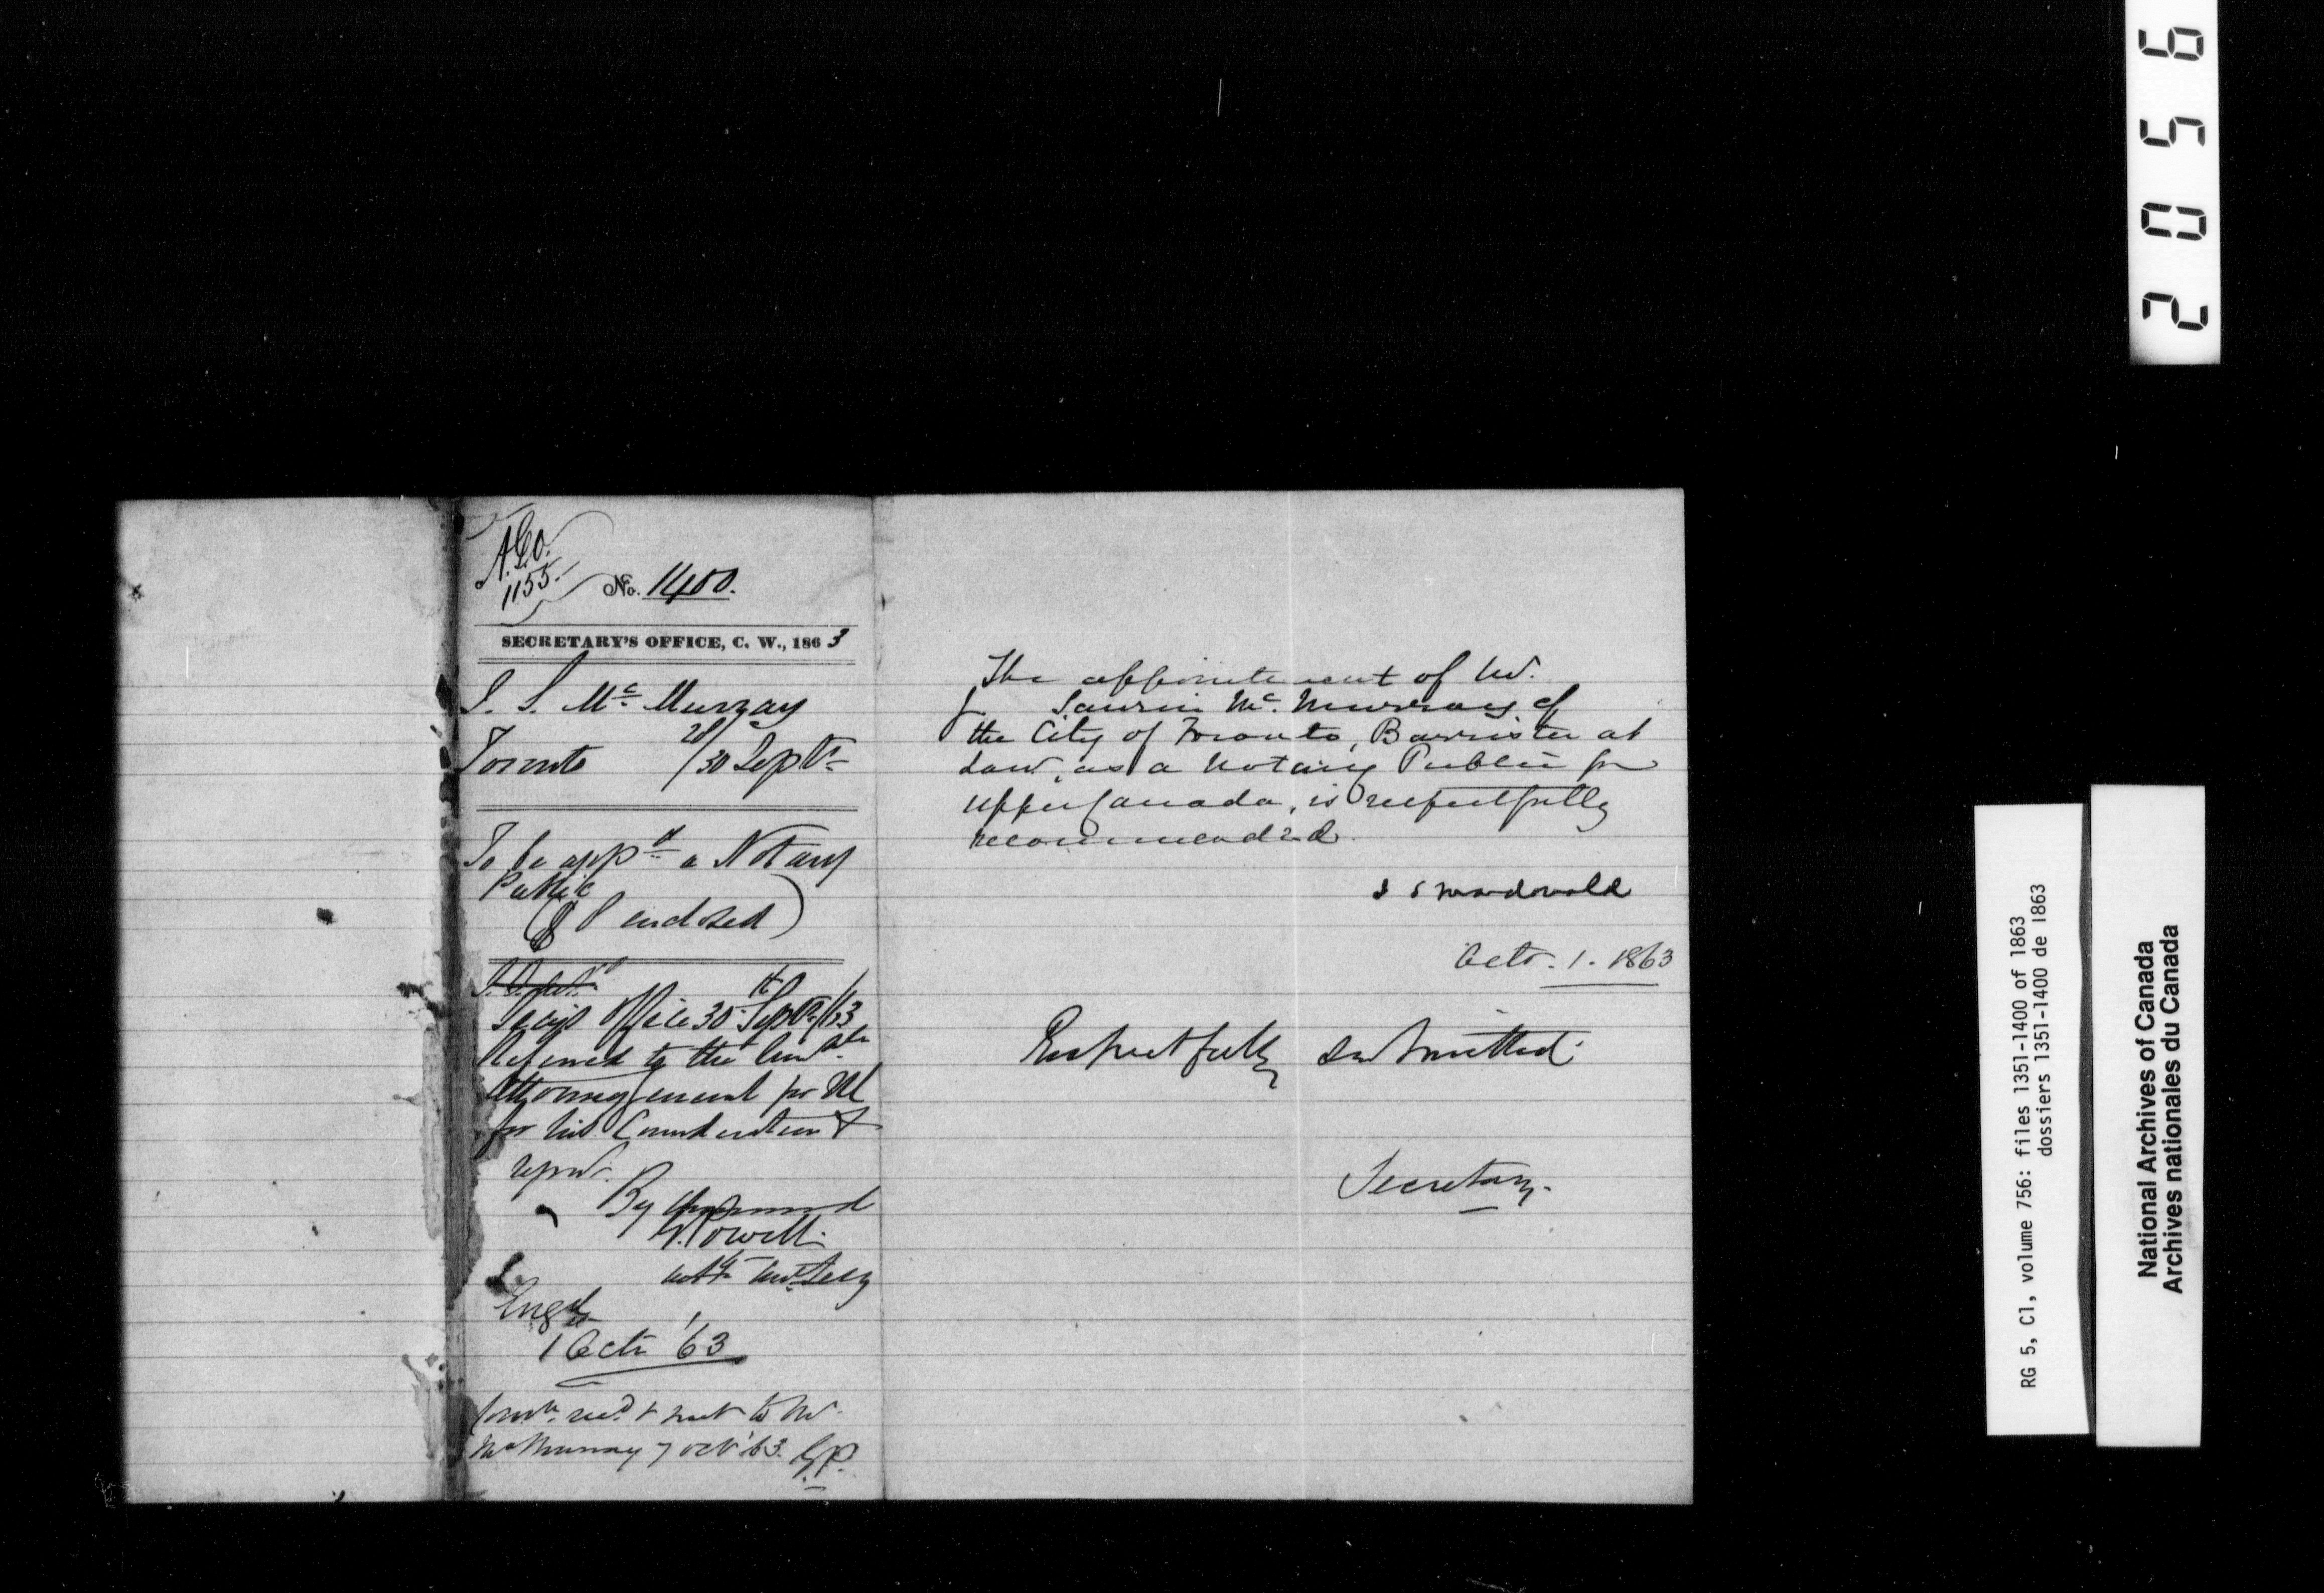 A.G.O.
1155.
No. 1400.
SECRETARY'S OFFICE, C. W., 1863
S. S. Mc Murray
Toronto 28/30 Septr
To be appd a Notary
Public
($8 enclosed)
Secy's Office 30th Septr /63
Referred to the Honble
Attorney General for UC
for his Consideration &
report.
By Command
G. Powell
Engd
1 Octr '63
Comn. recd & sent to Mr
McMurray 7 Oct '63. G.P.
The appointment of Mr.
J Saurin Mc. Murray of
the City of Toronto, Barrister at
Law, as a Notary Public for
Upper Canada, is respectfully
recommended.
J S Macdonald
Octr. 1. 1863
Respectfully submitted.
Secretary.
2056
RG 5, C1, volume 756: files 1351-1400 of 1863
dossiers 1351-1400 de 1863
National Archives of Canada
Archives nationales du Canada